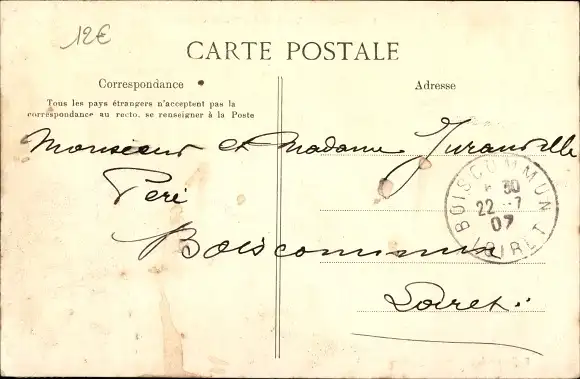 12€
CARTE POSTALE
Correspondance
Adresse
Tous les pays étrangers n'acceptent pas la
correspondance au recto, se renseigner à la Poste
Monsieur et Madame
Peré
Boiscommun
Loiret.
BOISCOMMUN
30
22 -7
07
LOIRET